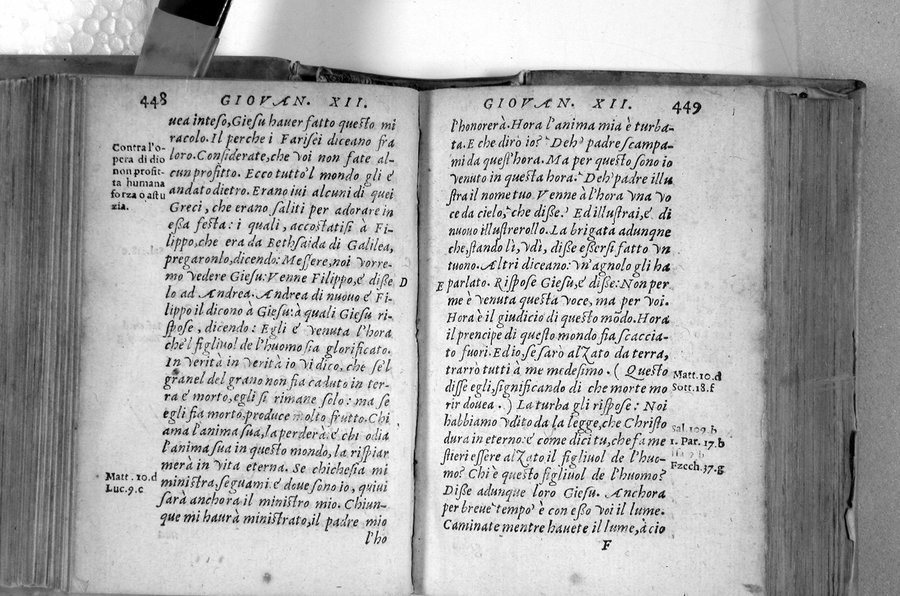 448
GIOVAN. XII.
uea inteso, Giesu hauer fatto questo mi
racolo. Il perche i Farisei diceano fra
loro. Considerate, che voi non fate al-
cun profitto. Ecco tutto'l mondo gli è
andato dietro. Erano iui alcuni di quei
Greci, che erano saliti per adorare in
essa festa: i quali, accostatisi à Fi-
lippo, che era da Bethsaida di Galilea,
pregaronlo, dicendo: Messere, noi vorre-
mo vedere Giesu. Venne Filippo, é disse
lo ad Andrea. Andrea di nuouo é Fi-
lippo il dicono à Giesu: à quali Giesu ri-
spose, dicendo: Egli é venuta l'hora
che'l figliuol de l'huomo sia glorificato.
In verità in verità io vi dico, che se'l
granel del grano non fia caduto in ter-
ra é morto, egli si rimane solo: ma se
egli fia morto, produce molto frutto. Chi
ama l'anima sua, la perderà: é chi odia
l'anima sua in questo mondo, la risþiar
merà in vita eterna. Se chichesia mi
ministra, seguami. é doue sono io, quiui
sarà anchora il ministro mio. Chiun-
que mi haurà ministrato, il padre mio
l'ho
Contra l'o-
pera di dio
non profit-
ta humana
forza o astu
zia.
D
Matt. 10.d
Luc. 9.c
GIOVAN. XII.
449
l'honorerà. Hora l'anima mia è turba-
ta. E che dirò io? Deh' padre scampa-
mi da quest'hora. Ma per questo sono io
venuto in questa hora. Deh' padre illu
stra il nome tuo. Venne à l'hora vna vo
ce da cielo, che disse. Ed illustrai, é di
nuouo illustrerollo. La brigata adunque
che, stando lì, vdì, disse essersi fatto vn
tuono. Altri diceano: vn'agnolo gli ha
parlato. Rispose Giesu, é disse: Non per
me è venuta questa voce, ma per voi.
Hora è il giudicio di questo mōdo. Hora
il prencipe di questo mondo fia scaccia-
to fuori. Ed io, se sarò alzato da terra,
trarrò tutti à me medesimo. (Questo
disse egli, significando di che morte mo
rir douea.) La turba gli rispose: Noi
habbiamo vdito da la legge, che Christo
dura in eterno: é come dici tu, che fa me
stieri essere alzato il figliuol de l'huo-
mo? Chi è questo figliuol de l'huomo?
Disse adunque loro Giesu. Anchora
per breue tempo è con esso voi il lume.
Caminate mentre hauete il lume, à cio
F
E
Matt. 10.d
Sott. 18.f
Sal. 109.b
1. Par. 17.b
Ezech. 37.g